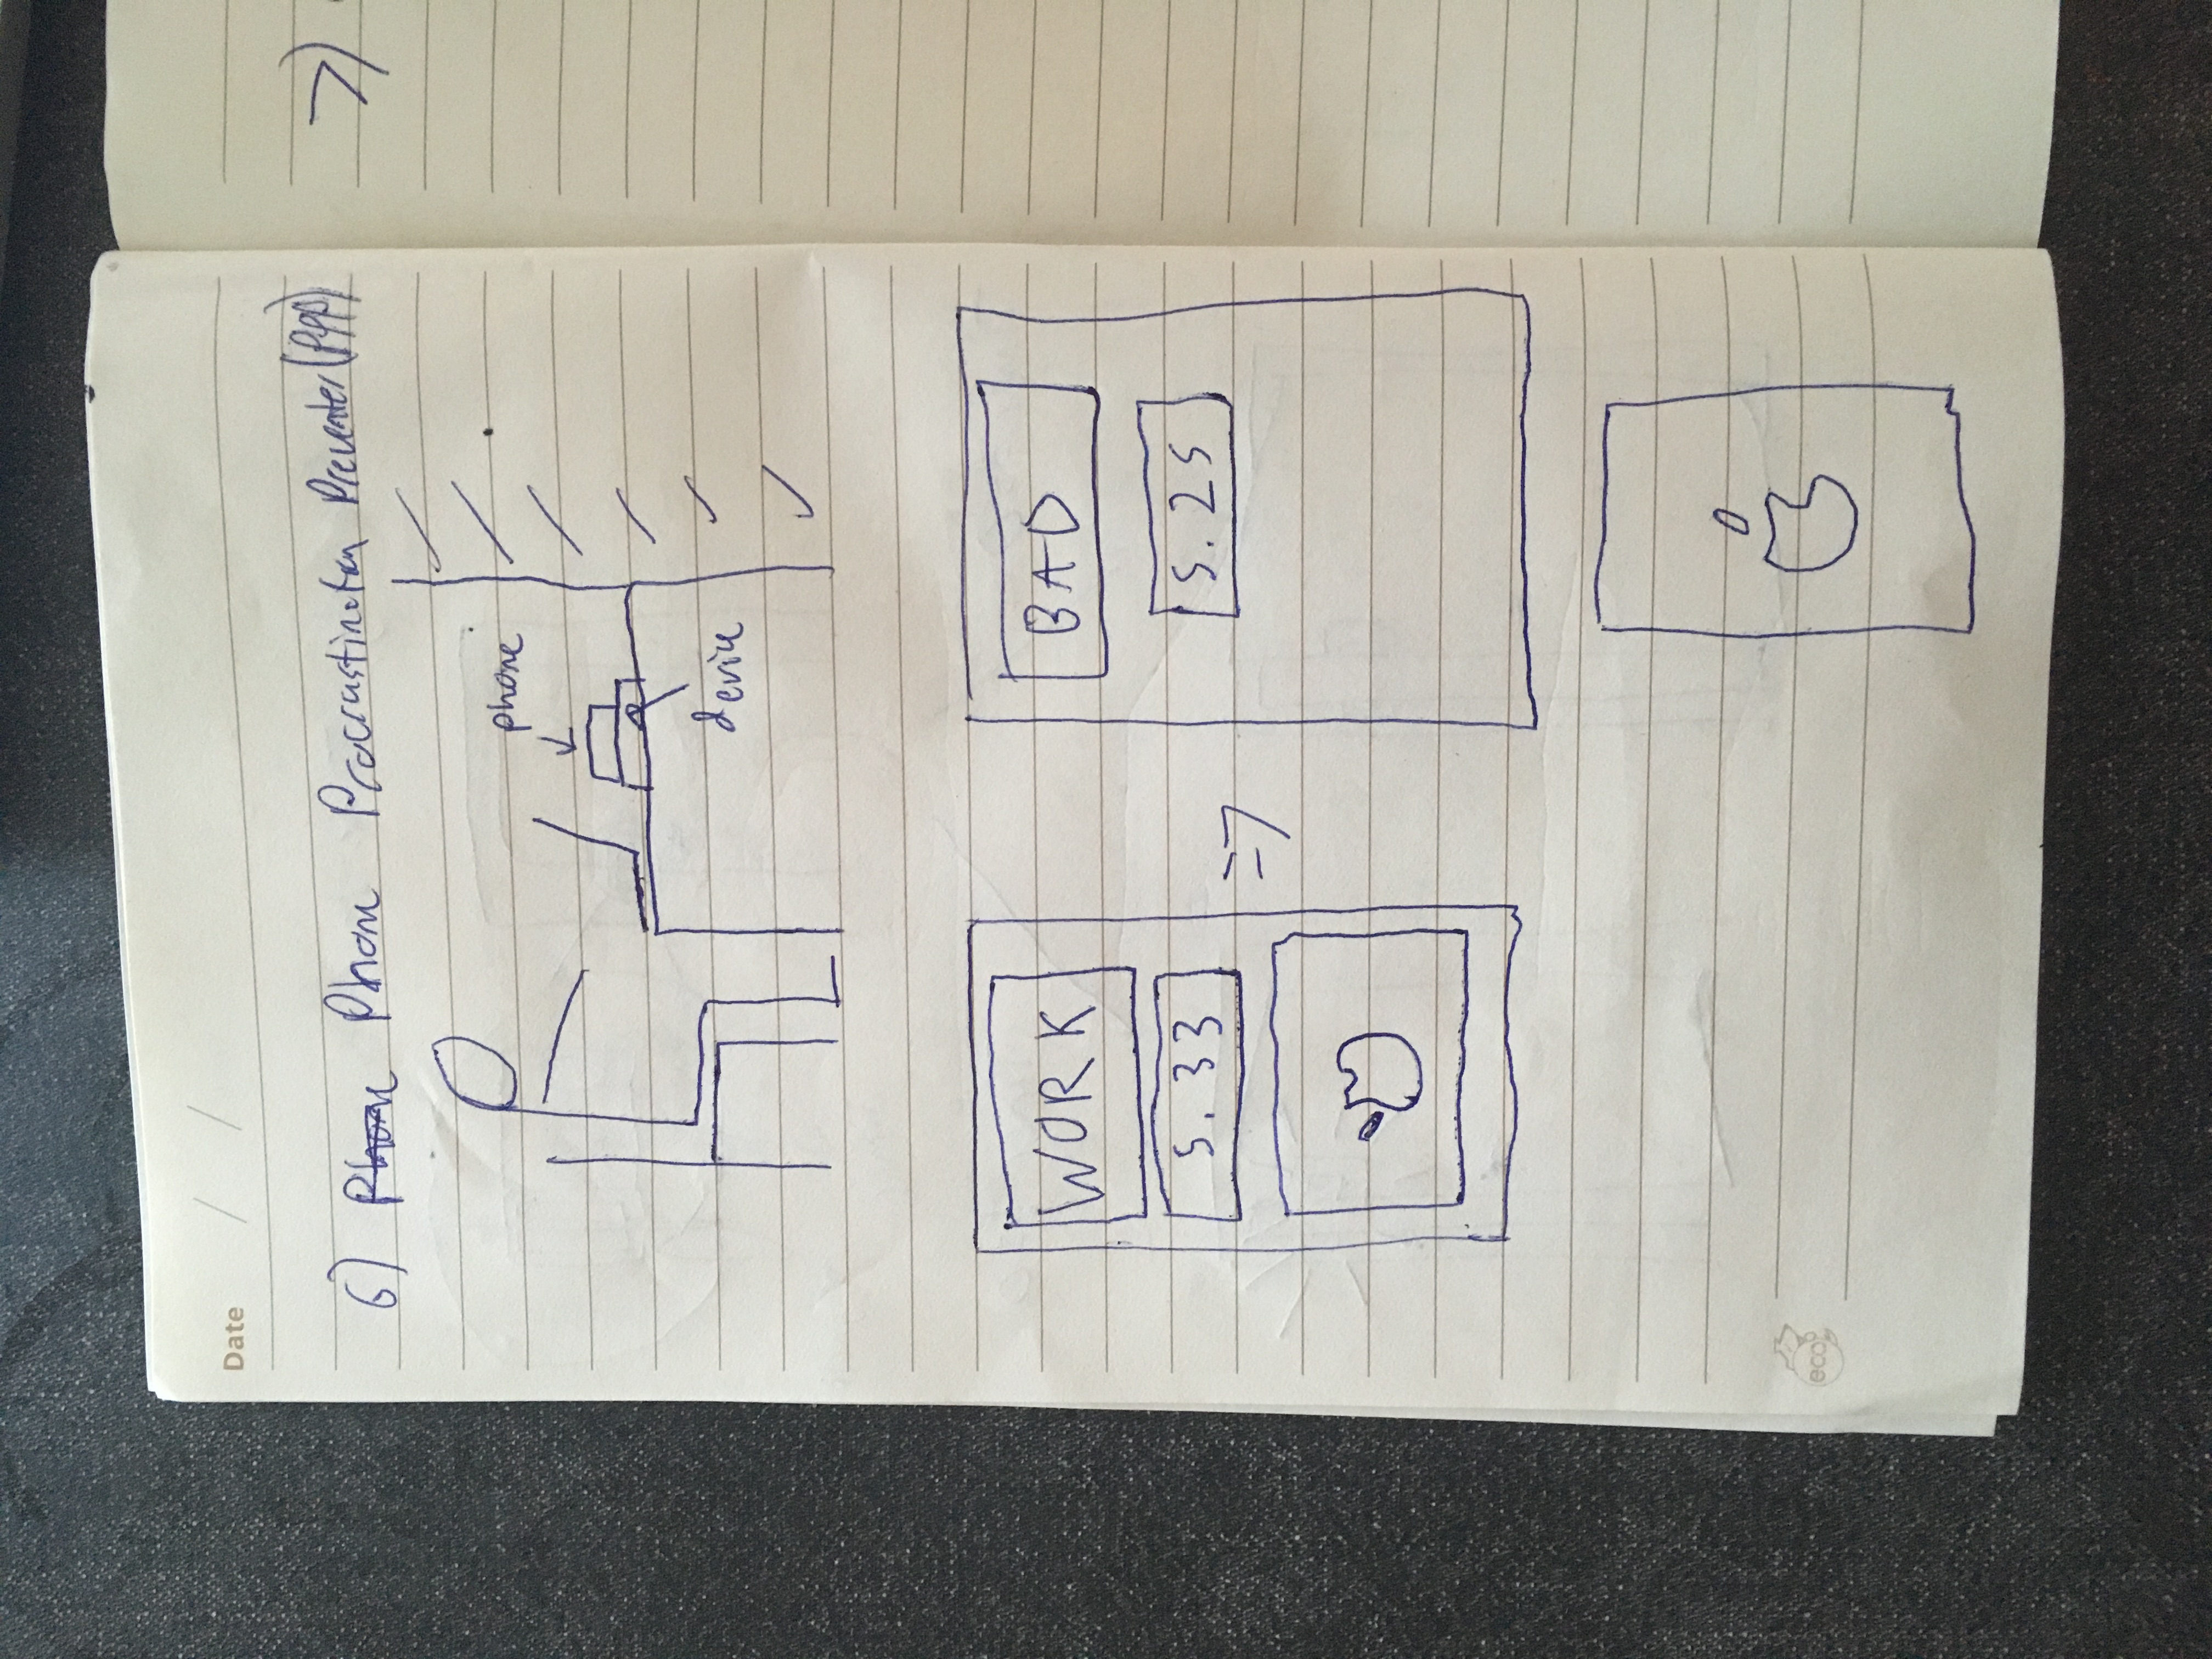 Date / /
6) Phone Phone Procrastination Preventer (PPP)
phone
device
WORK
BAD
5.33
5.25
=>
eco
7)